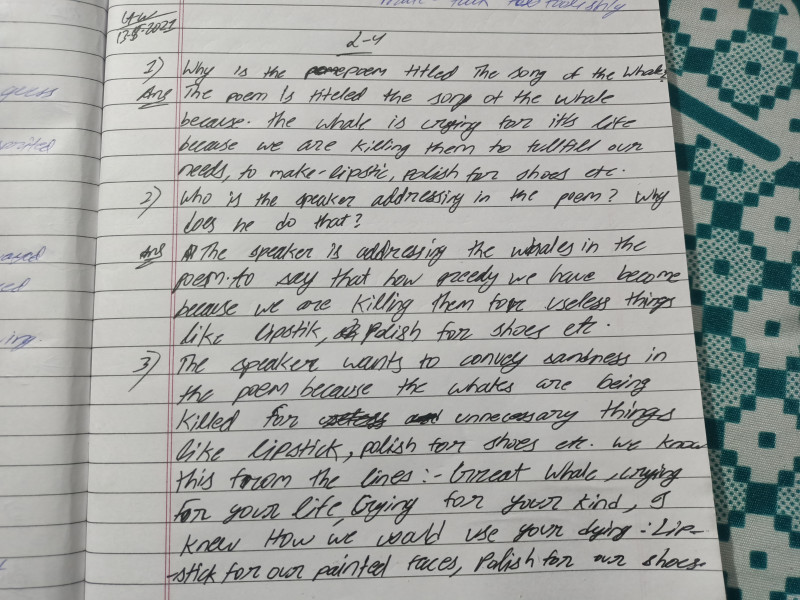 13-8-2021
2-4
1) Why is the poem titled The song of the Whale?
Ans The poem is titeled the song of the whale
because. the whale is crying for it's life
because we are killing them to fullfill our
needs, to make-lipstic, polish for shoes etc.
2) Who is the speaker addressing in the poem? Why
does he do that?
Ans The speaker is addressing the whales in the
poem. to say that how greedy we have become
because we are killing them for useless things
like lipstik, polish for shoes etc.
3) The speaker wants to convey sandness in
the poem because the whales are being
killed for useless and unnecessary things
like lipstick, polish for shoes etc. we know
this from the lines :- Great whale, crying
for your life, Crying for your kind, I
knew How we would use your dying :- Lip-
-stick for our painted faces, Polish for our shoes.